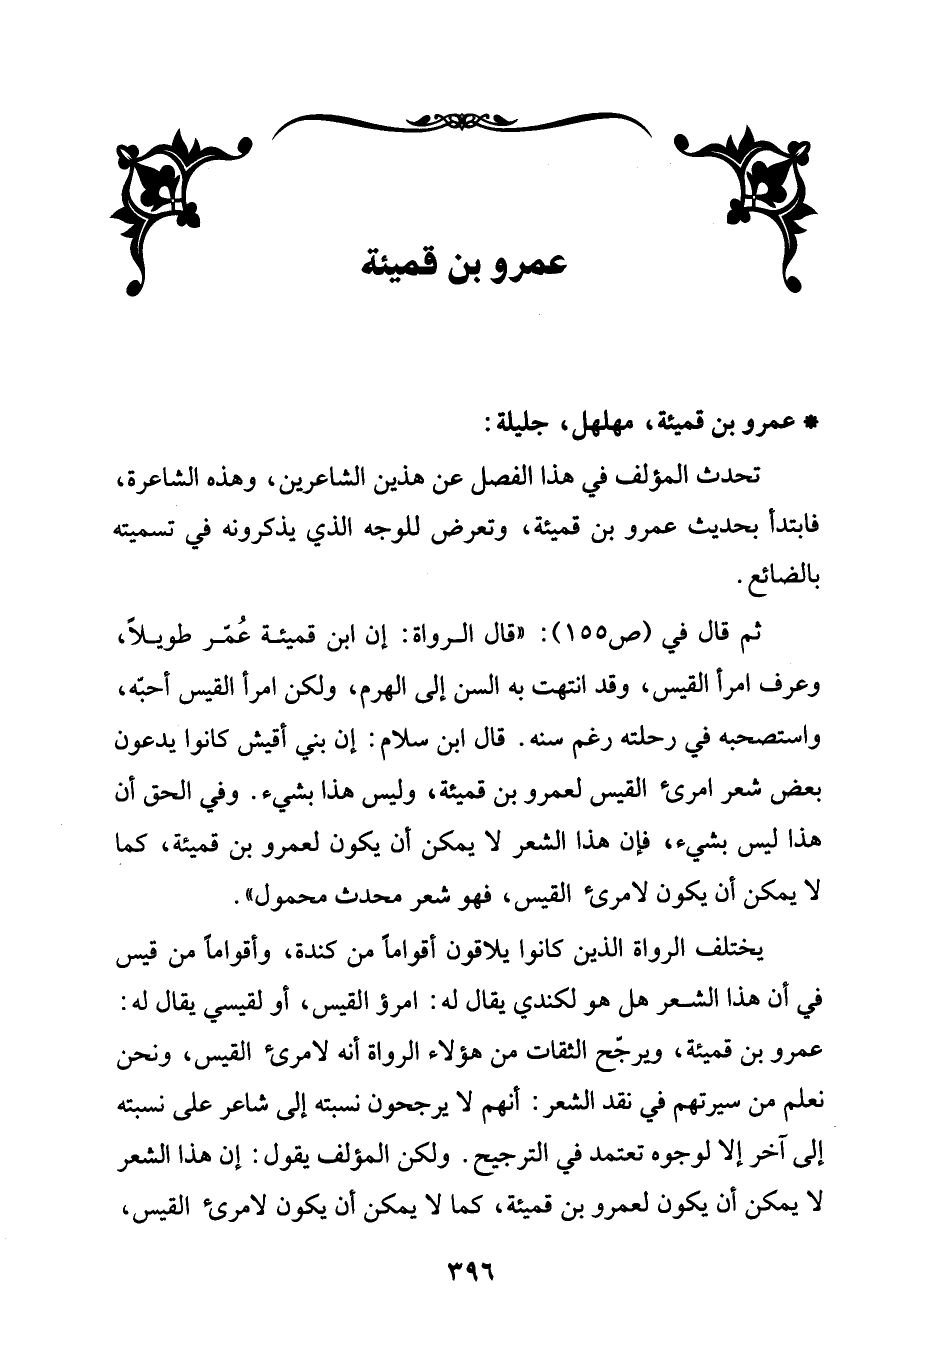 عمرو بن قميئة
* عمرو بن قميئة، مهلهل، جليلة:
تحدث المؤلف في هذا الفصل عن هذين الشاعرين، وهذه الشاعرة،
فابتدأ بحديث عمرو بن قميئة، وتعرض للوجه الذي يذكرونه في تسميته
بالضائع.
ثم قال في (ص١٥٥): «قال الرواة: إن ابن قميئة عُمّر طويلاً،
وعرف امرأ القيس، وقد انتهت به السن إلى الهرم، ولكن امرأ القيس أحبّه،
واستصحبه في رحلته رغم سنه. قال ابن سلام: إن بني أقيش كانوا يدعون
بعض شعر امرئ القيس لعمرو بن قميئة، وليس هذا بشيء. وفي الحق أن
هذا ليس بشيء، فإن هذا الشعر لا يمكن أن يكون لعمرو بن قميئة، كما
لا يمكن أن يكون لامرئ القيس، فهو شعر محدث محمول».
يختلف الرواة الذين كانوا يلاقون أقواماً من كندة، وأقواماً من قيس
في أن هذا الشعر هل هو لكندي يقال له: امرؤ القيس، أو لقيسي يقال له:
عمرو بن قميئة، ويرجّح الثقات من هؤلاء الرواة أنه لامرئ القيس، ونحن
نعلم من سيرتهم في نقد الشعر: أنهم لا يرجحون نسبته إلى شاعر على نسبته
إلى آخر إلا لوجوه تعتمد في الترجيح. ولكن المؤلف يقول: إن هذا الشعر
لا يمكن أن يكون لعمرو بن قميئة، كما لا يمكن أن يكون لامرئ القيس،
٣٩٦